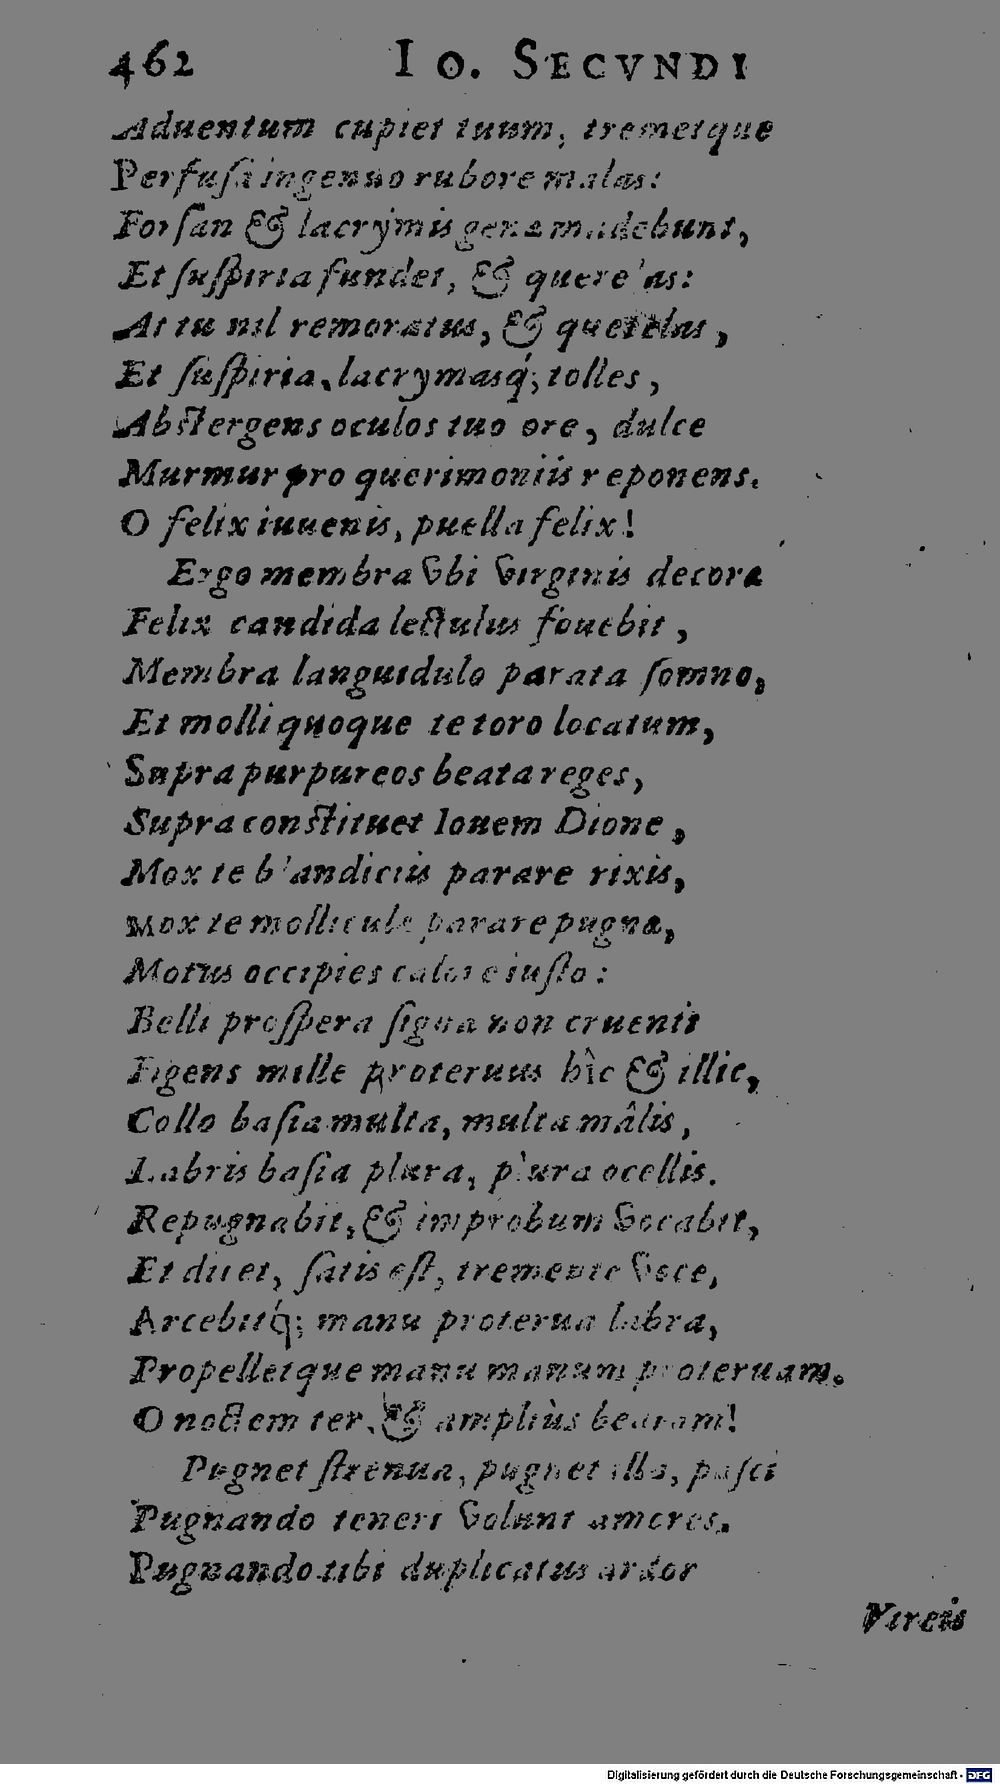 462 IO. SECVNDI
Aduentum cupiet tuum, tremetque
Perfusa ingenuo rubore malas:
Forsan & lacrymis genæ madebunt,
Et suspiria fundet, & querelas:
At tu nil remoratus, & querelas,
Et suspiria, lacrymasq́; tolles,
Abstergens oculos tuo ore, dulce
Murmur pro querimoniis reponens.
O felix iuuenis, puella felix!
Ergo membra vbi virginis decora
Felix candida lectulus fouebit,
Membra languidulo parata somno,
Et molli quoque te toro locatum,
Supra purpureos beata reges,
Supra constituet Iouem Dione,
Mox te blandiciis parare rixis,
Mox te molliculæ parare pugnæ,
Motus occipies calore iusto:
Belli prospera signa non cruenti
Figens mille proteruus hîc & illic,
Collo basia multa, multa mâlis,
Labris basia plura, plura ocellis.
Repugnabit, & improbum vocabit,
Et dicet, satis est, tremente voce,
Arcebitq́; manu proterua labra,
Propelletque manu manum proteruam.
O noctem ter, & ampliùs beatam!
Pugnet strenua, pugnet illa, pasci
Pugnando teneri volunt amores.
Pugnando tibi duplicatus ardor
Vireis
Digitalisierung gefördert durch die Deutsche Forschungsgemeinschaft - DFG